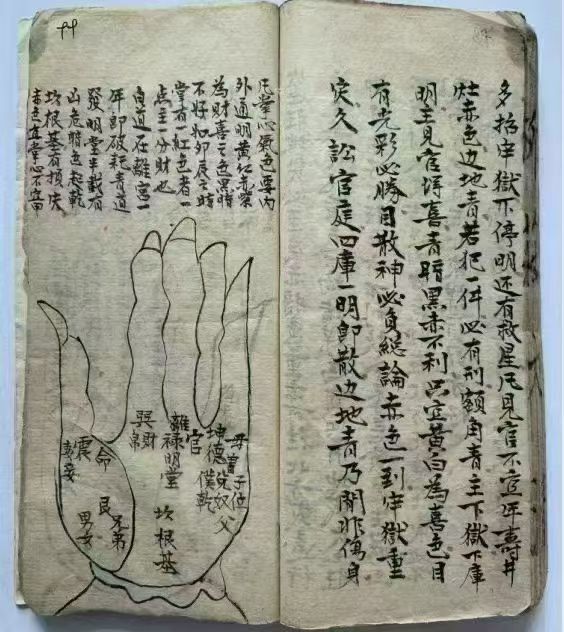 多招牢獄下停明还有救星凡見官不宜年壽井
灶赤色边地青若犯一件必有刑額角青主下獄下庫
明主見官得喜青暗黑赤不利只宜黄白為喜色目
有光彩必勝目散神必負総論赤色一到牢獄重
灾久訟官庭四庫一明即散边地青乃閑非傷身
凡掌心氣色要内
外通明黄红赤紫
為財喜之色黑暗
不好如卯辰之時
掌有一紅色者一
点主一分財也
自道在離宮一
年即破耗青道
發明堂半載有
凶危暗色起乾
坎根基有損失
赤色直掌心不宜
子位
奴父
坤德
僕乾
官
離祿明堂
巽財帛
坎根基
震命
妻妾
艮兄弟
男女